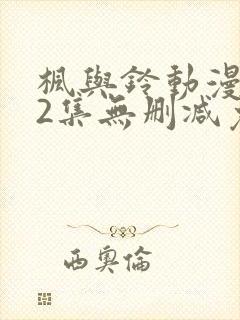 楓與鈴動漫
2集無刪減
西奧倫